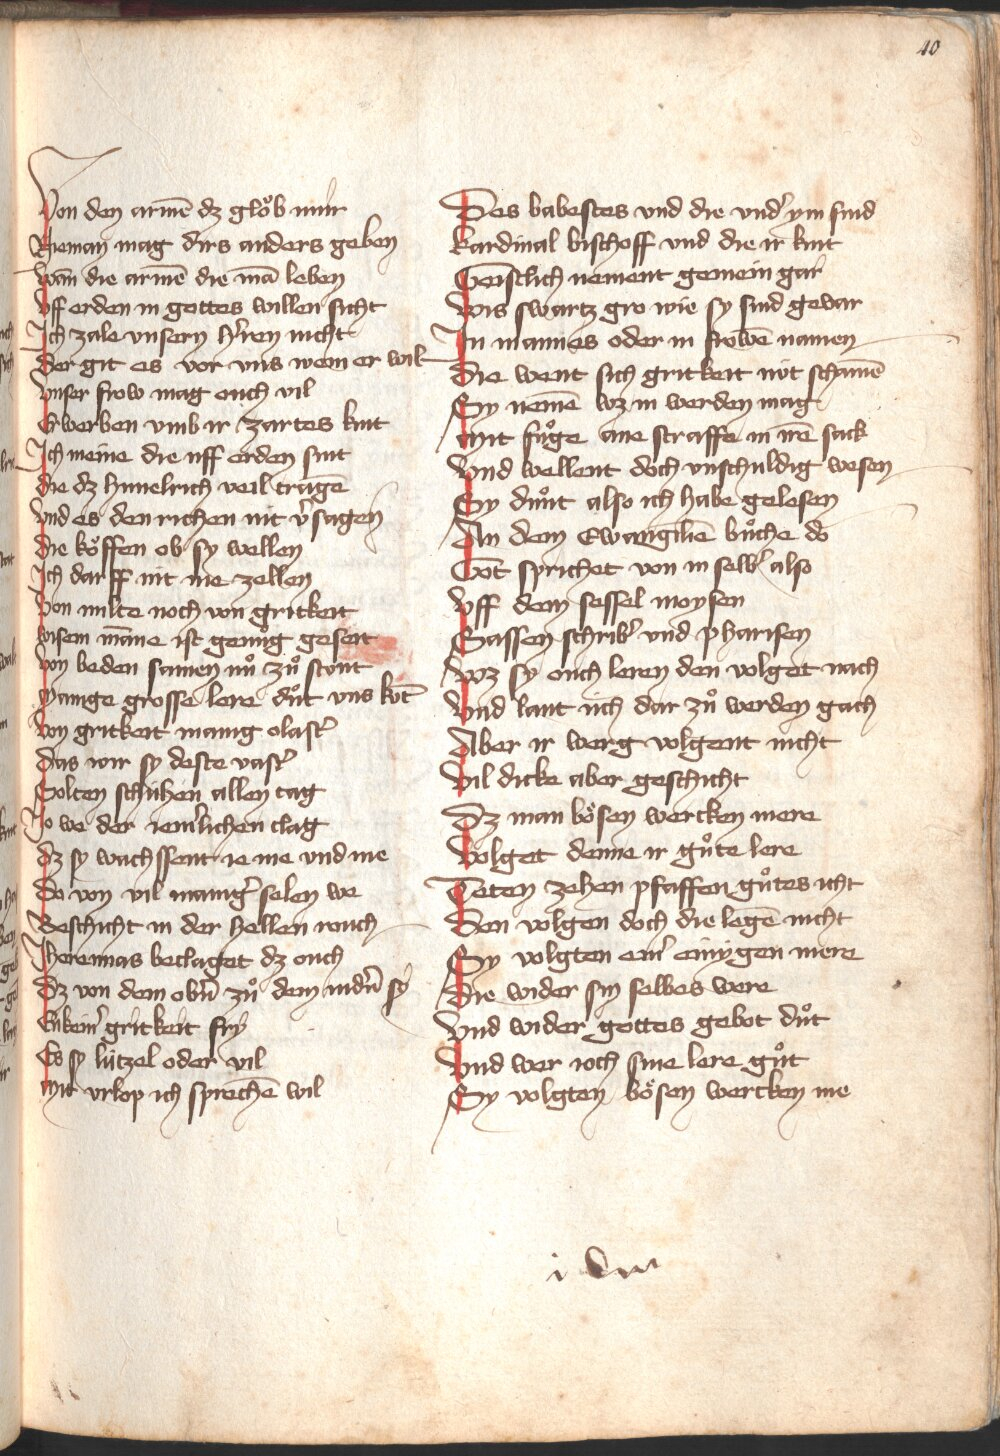 40
Von den armē dz glo̊b mir
Nieman mag dirs anders geben
Wān die armē die mā leben
Vff erden in gottes willen sicht
Ich zale vnsern h̕ren nicht
Der git es vor vns wem er wil
Vnser frow mag ouch vil
Erwerben vmb ir zartes kint
Ich meine die vff erden sint
Die dz himelrich veil tragē
Vnd es den richen nit v̕sagen
Die köffen ob sy wellen
Ich darff nit me zellen
Von milte noch von gritkeit
Wisem māne ist genůg geseit
Von beden samen nů zů stont
Mange grosse lere důt vns kōt
Von gritkeit manig olast̕
Das wir sy deste vast̕
Solten schühen allen tag
Jo we der iem̕lichen clag
Dz sy wachssent ie me vnd me
Do von vil manig̕ selen we
Beschicht in der hellen rouch
Jheremias beclaget dz ouch
Dz von dem ob̕n zů dem nid̕n sy
Enkein̕ gritkeit fry
Es sy lützel oder vil
Mit vrlop ich sprechē wil
Des babestes vnd die vnd̕ ym sind
Kardinal bischoff vnd die ir kint
Geistlich nement gemein gar
Wis swartz gro wie sy sind gevar
In mannes oder in frowē namen
Die went sich gritkeit nůt schamē
Sy nemē wz in werden mag
Mit fůge ane straffe in irē sack
Vnd wellent doch vnschuldig wesen
Sy důnt also ich habe gelesen
An dem Ewangilien bůche do
Got sprichet von in selb̕ also
Vff dem sessel moysen
Sassen schrib̕ vnd pharisen
Waz sy ouch leren den volget nach
Vnd lant üch dar zů werden gach
Aber ir werg volgent nicht
Vil dicke aber geschicht
Dz man bösen wercken mere
Volget denne ir gůte lere
Teten zehen pfaffen gůtes icht
Den volgen doch die legē nicht
Sy volgten ein̕ einygen mere
Die wider sin selbes were
Vnd wider gottes gebot důt
Vnd wer ioch sine lere gůt
Sy volgten bösen wercken me